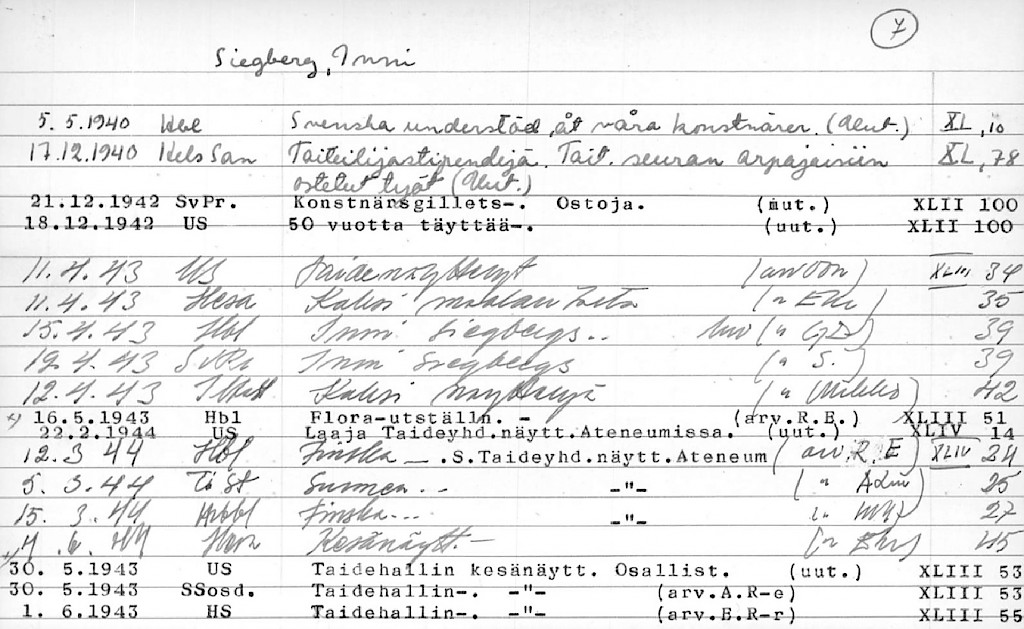 7
Siegberg, Inni
5. 5.1940 Hbl Svenska understöd åt våra konstnärer. (Uut.) XL, 10
17.12.1940 Hels San Taiteilijastipendejä. Tait. seuran arpajaisiin XL, 78
ostetut työt (Uut.)
21.12.1942 SvPr. Konstnärsgillets-. Ostoja. (uut.) XLII 100
18.12.1942 US 50 vuotta täyttää-. (uut.) XLII 100
11.4.43 US Taidenäyttelyt (arv OOn) XLIII 34
11.4.43 Hesa Kaksi maalari (" E 35
15.4.43 Hbl Inni Siegbergs.. (" 39
19.4.43 SvPr Inni Siegbergs (" S.) 39
12.4.43 Kaksi näyttelyä (" 42
16.5.1943 Hbl Flora-utställn. - (arv.R.E.) XLIII 51
22.2.1944 US Laaja Taideyhd.näytt.Ateneumissa. (uut.) XLIV 14
12.3 44 Hbl Finska - .S.Taideyhd.näytt.Ateneum (arv. R.E) XLIV 24
5. 3.44 Suomen.. -"- (" 25
15. 3.44 Finska... -"- (" 27
4 .6. 44 Kesänäytt.- (" 45
30. 5.1943 US Taidehallin kesänäytt. Osallist. (uut.) XLIII 53
30. 5.1943 SSosd. Taidehallin-. -"- (arv.A.R-e) XLIII 53
1. 6.1943 HS Taidehallin-. -"- (arv.E.R-r) XLIII 55